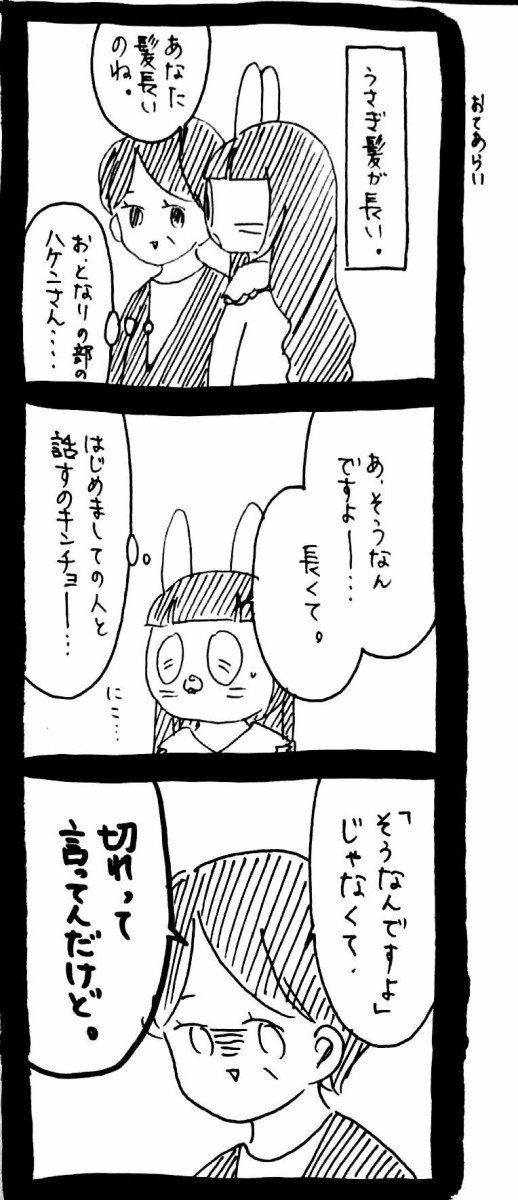 おてあらい
うさぎ髪が長い。
あなた
髪長い
のね。
お、となりの部の
ハケンさん‥‥
あ、そうなん
ですよー‥‥
長くて。
はじめましての人と
話すのキンチョー‥‥
にこ‥‥
「そうなんですよ」
じゃなくて、
切れって
言ってんだけど。